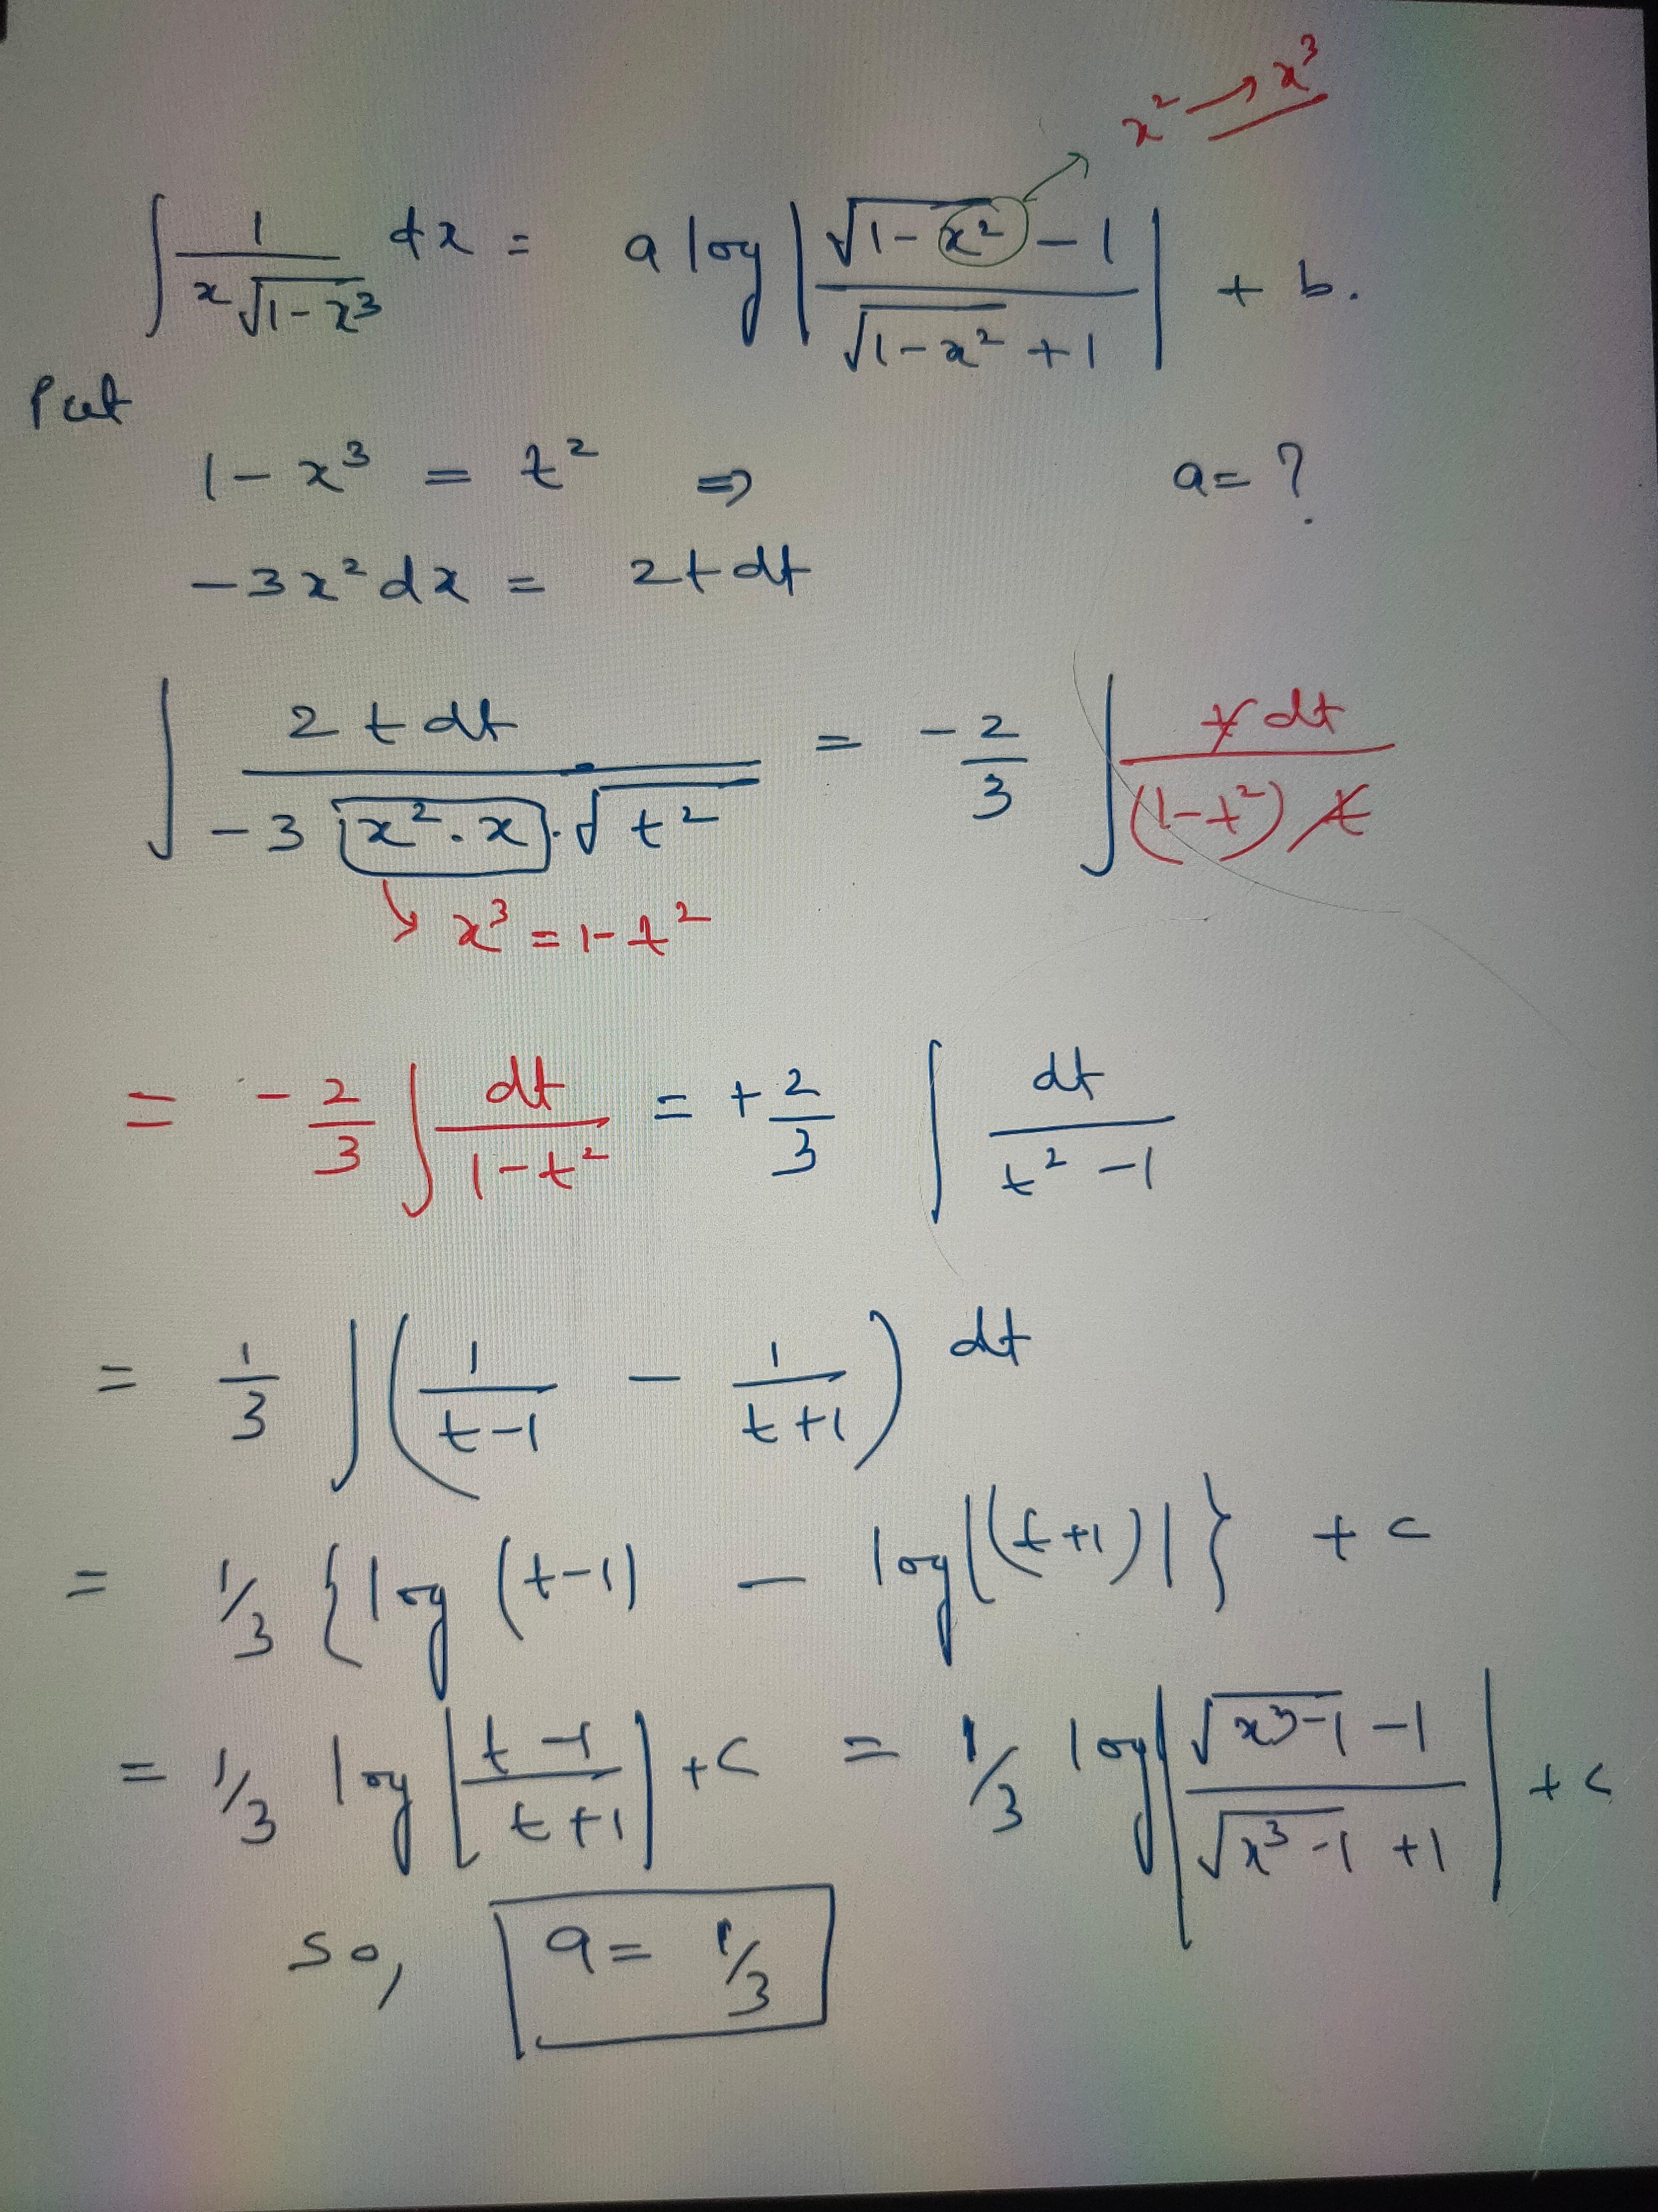 x² → x³
∫ 1/(x√(1-x³)) dx = a log |(√(1-x²) - 1)/(√(1-x²) + 1)| + b.
Put
1-x³ = t² ⇒ a = ?
-3x²dx = 2tdt
∫ 2tdt/(-3 x².x.√t²) = -2/3 ∫ tdt/((1-t²)t)
↳ x³ = 1-t²
= -2/3 ∫ dt/(1-t²) = +2/3 ∫ dt/(t²-1)
= 1/3 ∫ (1/(t-1) - 1/(t+1)) dt
= 1/3 {log (t-1) - log|(t+1)|} + c
= 1/3 log |(t-1)/(t+1)| + c = 1/3 log |(√(x³-1) - 1)/(√(x³-1) + 1)| + c
so, a = 1/3